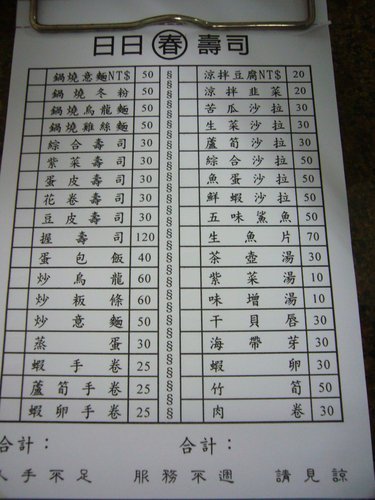 日日春壽司
鍋燒意麵NT$ 50 § 涼拌豆腐NT$ 20
鍋燒冬粉 50 § 涼拌韭菜 20
鍋燒烏龍麵 50 § 苦瓜沙拉 30
鍋燒雞絲麵 50 § 生菜沙拉 30
綜合壽司 30 § 蘆筍沙拉 30
紫菜壽司 30 § 綜合沙拉 50
蛋皮壽司 30 § 魚蛋沙拉 50
花卷壽司 30 § 鮮蝦沙拉 50
豆皮壽司 30 § 五味鯊魚 50
握壽司 120 § 生魚片 70
蛋包飯 40 § 茶壺湯 30
炒烏龍 60 § 紫菜湯 10
炒板條 60 § 味增湯 10
炒意麵 50 § 干貝唇 30
蒸蛋 30 § 海帶芽 30
蝦手卷 25 § 蝦卵 30
蘆筍手卷 25 § 竹筍 50
蝦卵手卷 25 § 肉卷 30
合計： 合計：
人手不足 服務不週 請見諒